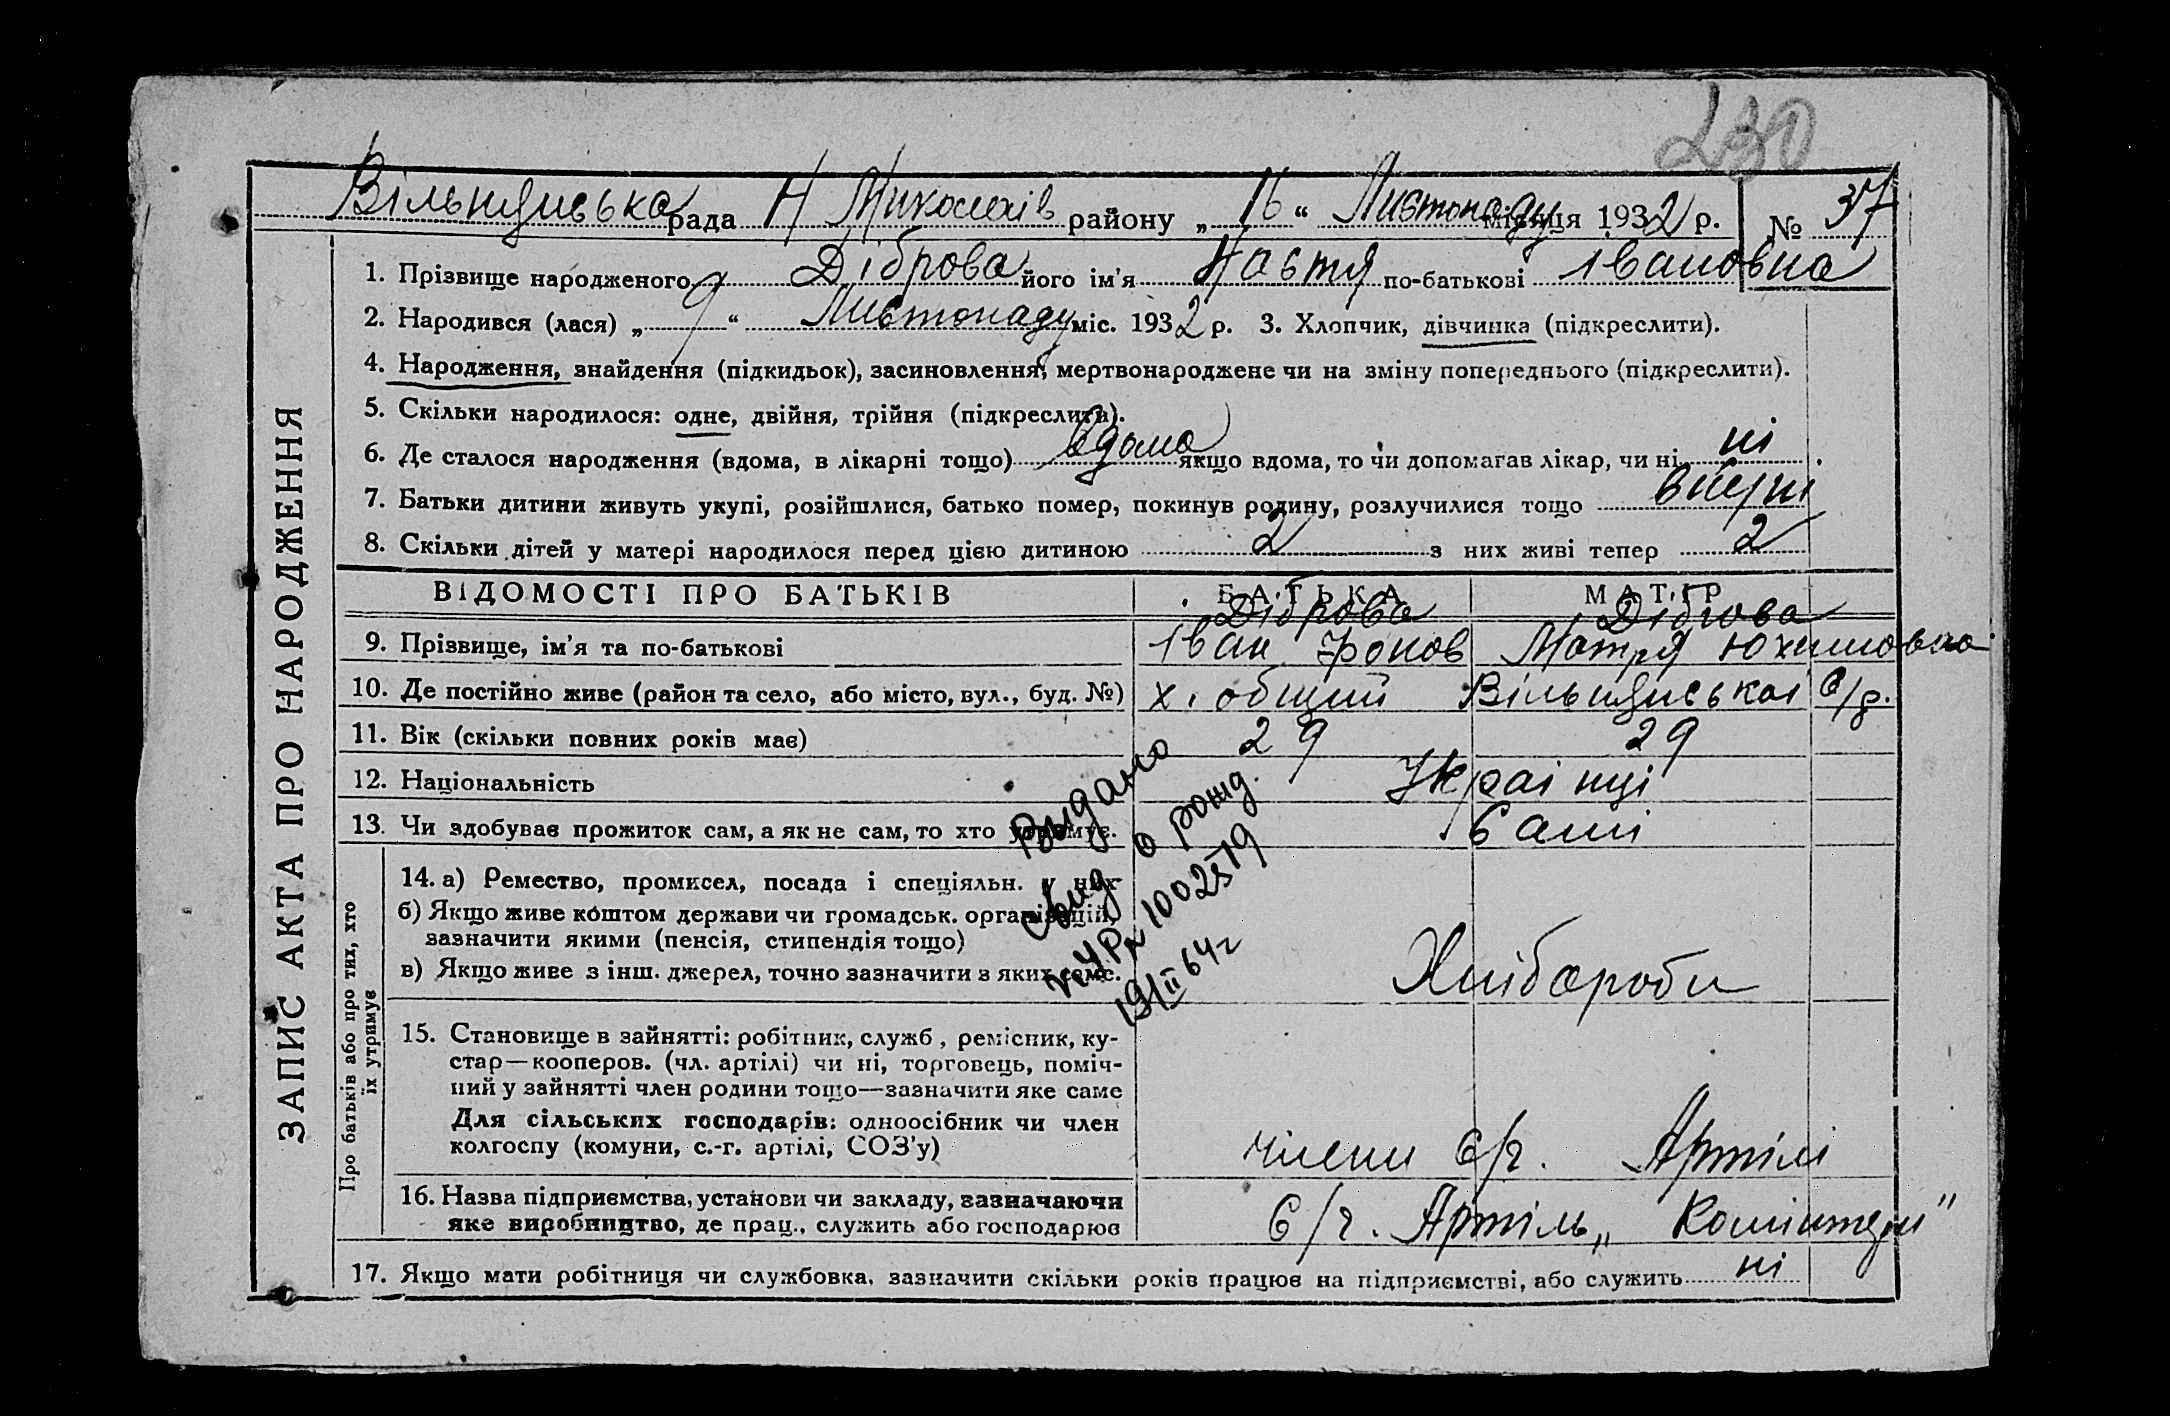 230
Вільнянська рада Н Миколаїв району „ 16 “ Листопаду місяця 1932 р. № 37
ЗАПИС АКТА ПРО НАРОДЖЕННЯ
1. Прізвище народженого Діброва його ім'я Настя по-батькові Івановна
2. Народився (лася) „ 9 “ Листопаду міс. 1932 р. 3. Хлопчик, дівчинка (підкреслити).
4. Народження, знайдення (підкидьок), засиновлення, мертвонароджене чи на зміну попереднього (підкреслити).
5. Скільки народилося: одне, двійня, трійня (підкреслити).
6. Де сталося народження (вдома, в лікарні тощо) вдома якщо вдома, то чи допомагав лікар, чи ні ні
7. Батьки дитини живуть укупі, розійшлися, батько помер, покинув родину, розлучилися тощо
8. Скільки дітей у матері народилося перед цією дитиною 2 з них живі тепер 2
ВІДОМОСТІ ПРО БАТЬКІВ БАТЬКА МАТІР
Діброва Діброва
9. Прізвище, ім'я та по-батькові Іван Мотря Юхимовна
10. Де постійно живе (район та село, або місто, вул., буд. №) х. общий Вільнянськаі с/р.
11. Вік (скільки повних років має) 29 29
12. Національність Украінці
13. Чи здобував прожиток сам, а як не сам, то хто утримує. Самі
Про батьків або про тих, хто
їх утримує
14. а) Ремество, промисел, посада і спеціяльн. у них
б) Якщо живе коштом держави чи громадськ. організацій,
зазначити якими (пенсія, стипендія тощо)
в) Якщо живе з інш. джерел, точно зазначити з яких саме. Хлібороби
Видано
свид о рожд.
УР № 1002519
19/II 64 г
15. Становище в зайнятті: робітник, служб, ремісник, ку-
стар—кооперов. (чл. артілі) чи ні, торговець, поміч-
ний у зайнятті член родини тощо—зазначити яке саме
Для сільських господарів: одноосібник чи член
колгоспу (комуни, с.-г. артілі, СОЗ'у) члени с/г. Артілі
16. Назва підприємства, установи чи закладу, зазначаючи
яке виробництво, де прац., служить або господарює с/г. Артіль „ Комінтерн "
17. Якщо мати робітниця чи службовка, зазначити скільки років працює на підприємстві, або служить ні